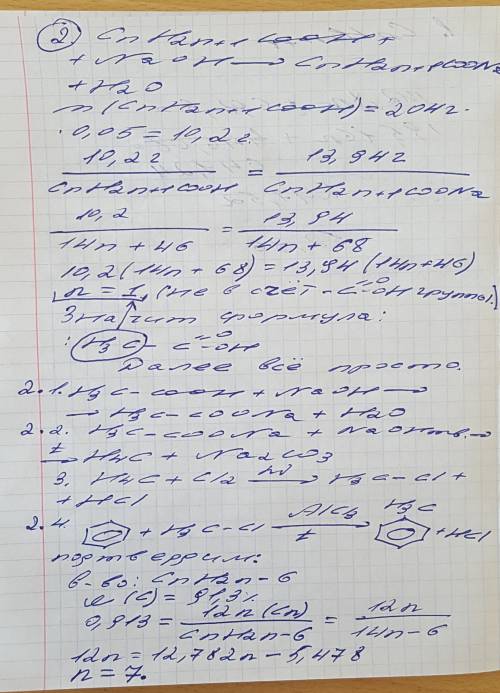 ② CnH2n+1 COOH +
+ NaOH → CnH2n+1COONa
+ H2O
m(CnH2n+1COOH) = 204г ·
· 0,05 = 10,2г.
10,2г / CnH2n+1COOH = 13,94г / CnH2n+1COONa
10,2 / 14n + 46 = 13,94 / 14n + 68
10,2(14n + 68) = 13,94(14n+46)
n = 1, (не в счёт -C=O OH группы.)
Значит формула:
: H3C - C=O OH
Далее всё просто.
2.1. H3C - COOH + NaOH →
→ H3C - COONa + H2O
2.2. H3C - COONa + NaOHтв. →
t → H4C + Na2CO3
3. H4C + Cl2 hν → H3C - Cl +
+ HCl
2.4. + H3C - Cl AlCl3 t → H3C + HCl
подтвердим:
в-во: CnH2n-6
ω(C) = 91,3%
0,913 = 12n(Cn) / CnH2n-6 = 12n / 14n-6
12n = 12,782n - 5,478
n = 7.